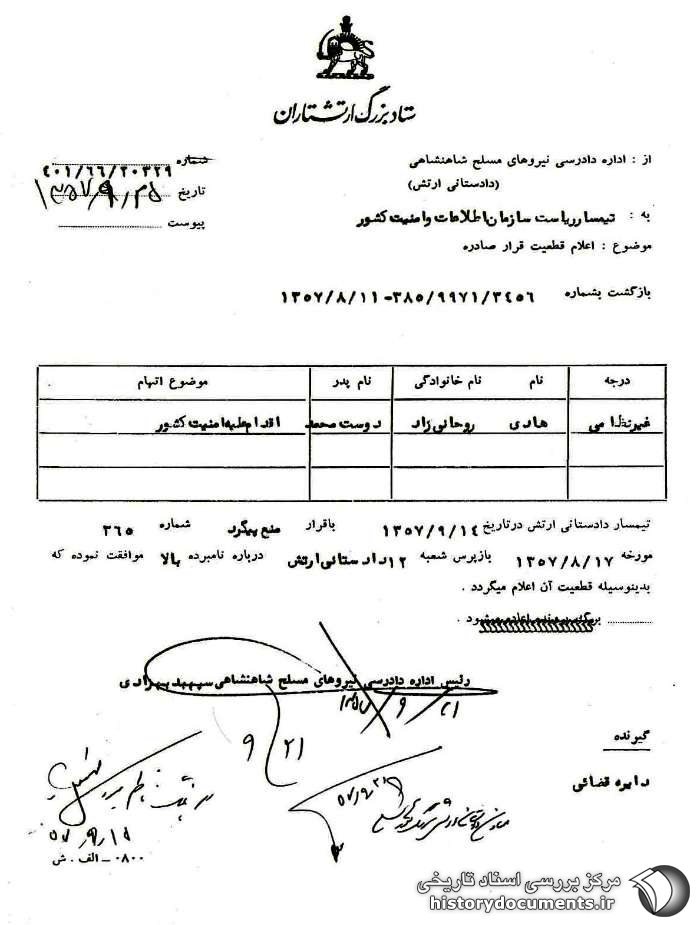 ستاد بزرگ ارتشتاران
از : اداره دادرسی نیروهای مسلح شاهنشاهی
(دادستانی ارتش)
شماره ۴۰۱/۶۶/۲۰۳۲۹
تاریخ
پیوست
به : تیمسار ریاست سازمان اطلاعات و امنیت کشور
موضوع : اعلام قطعیت قرار صادره
بازگشت بشماره ۳۸۵/۹۹۷۱/۳۴۵۶-۱۳۵۷/۸/۱۱
درجه نام نام خانوادگی نام پدر موضوع اتهام
غیرنظامی هادی روحانی زاد دوست محمد اقدام علیه امنیت کشور
تیمسار دادستانی ارتش درتاریخ ۱۳۵۷/۹/۱۴ باقرار منع پیگرد شماره ۳۶۵
مورخه ۱۳۵۷/۸/۱۷ بازپرس شعبه ۱۲ دادستانی ارتش درباره نامبرده بالا موافقت نموده که
بدینوسیله قطعیت آن اعلام میگردد .
رئیس اداره دادرسی نیروهای مسلح شاهنشاهی سپهبد بهزادی
۱۳۵۷/۹/۲۱
۹/۲۱
گیرنده
دایره قضائی
۰۸۰۰ - الف . ش
مرکز بررسی اسناد تاریخی
historydocuments.ir